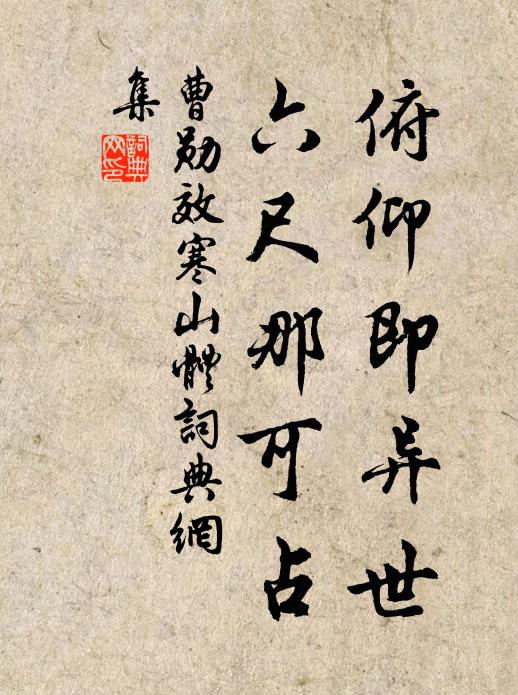 俯仰即异世
六尺那可占
曹勋效寒山體詞典網
集
詞典网印